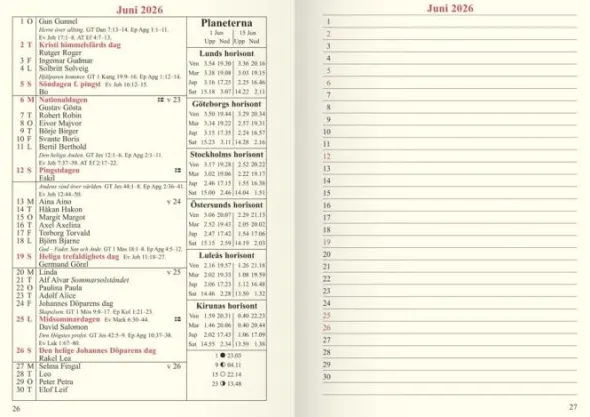 Juni 2026
1 O Gun Gunnel
Herre över alltog. GT Dan 7:13–14. Ep Apg 1:1–11.
Ev Joh 17:1–8. AT Ef 4:7–13.
2 T Kristi himmelsfärds dag
Rutger Roger
3 F Ingemar Gudmar
4 L Solbritt Solveig
Hjälparen kommer. GT 1 Kung 19:9–16. Ep Apg 1:12–14.
5 S Söndagen f. pingst Ev Joh 16:12–15.
Bo
6 M Nationaldagen v 23
Gustav Gösta
7 T Robert Robin
8 O Eivor Majvor
9 T Börje Birger
10 F Svante Boris
11 L Bertil Berthold
Den heliga Anden. GT Jes 12:1–6. Ep Apg 2:1–11.
Ev Joh 7:37–39. AT Ef 2:17–22.
12 S Pingstdagen
Eskil
Andens vind över världen. GT Jes 44:1–8. Ep Apg 2:36–41.
Ev Joh 12:44–50.
13 M Aina Aino v 24
14 T Håkan Hakon
15 O Margit Margot
16 T Axel Axelina
17 F Torborg Torvald
18 L Björn Bjarne
Gud – Fader, Son och Ande. GT 1 Mos 18:1–8. Ep Apg 4:5–12.
19 S Heliga trefaldighets dag Ev Joh 11:18–27.
Germund Görel
20 M Linda v 25
21 T Alf Alvar Sommarsolståndet
22 O Paulina Paula
23 T Adolf Alice
24 F Johannes Döparens dag
Skapelsen. GT 1 Mos 9:8–17. Ep Kol 1:21–23.
25 L Midsommardagen Ev Mark 6:30–44.
David Salomon
Den Högstes profet. GT Jes 42:5–9. Ep Apg 10:37–38.
Ev Luk 1:67–80.
26 S Den helige Johannes Döparens dag
Rakel Lea
27 M Selma Fingal v 26
28 T Leo
29 O Peter Petra
30 T Elof Leif
26
Planeterna
1 Jun 15 Jun
Upp Ned Upp Ned
Lunds horisont
Ven 3.54 19.30 3.36 20.16
Mar 3.38 19.08 3.03 19.15
Jup 3.16 17.23 2.25 16.46
Sat 15.18 3.07 14.22 2.11
Göteborgs horisont
Ven 3.50 19.44 3.29 20.34
Mar 3.34 19.22 2.57 19.31
Jup 3.15 17.35 2.24 16.57
Sat 15.23 3.11 14.28 2.16
Stockholms horisont
Ven 3.17 19.28 2.52 20.22
Mar 3.02 19.06 2.22 19.17
Jup 2.46 17.15 1.55 16.38
Sat 15.00 2.46 14.04 1.51
Östersunds horisont
Ven 3.06 20.07 2.29 21.13
Mar 2.52 19.43 2.05 20.02
Jup 2.47 17.42 1.54 17.06
Sat 15.15 2.59 14.19 2.03
Luleås horisont
Ven 2.16 19.57 1.26 21.18
Mar 2.02 19.33 1.08 19.59
Jup 2.06 17.23 1.12 16.48
Sat 14.46 2.28 13.50 1.32
Kirunas horisont
Ven 1.59 20.31 0.40 22.23
Mar 1.46 20.06 0.40 20.44
Jup 2.02 17.43 1.06 17.09
Sat 14.55 2.34 13.59 1.38
1 23.03
9 04.11
15 22.14
23 13.48
Juni 2026
1
2
3
4
5
6
7
8
9
10
11
12
13
14
15
16
17
18
19
20
21
22
23
24
25
26
27
28
29
30
27